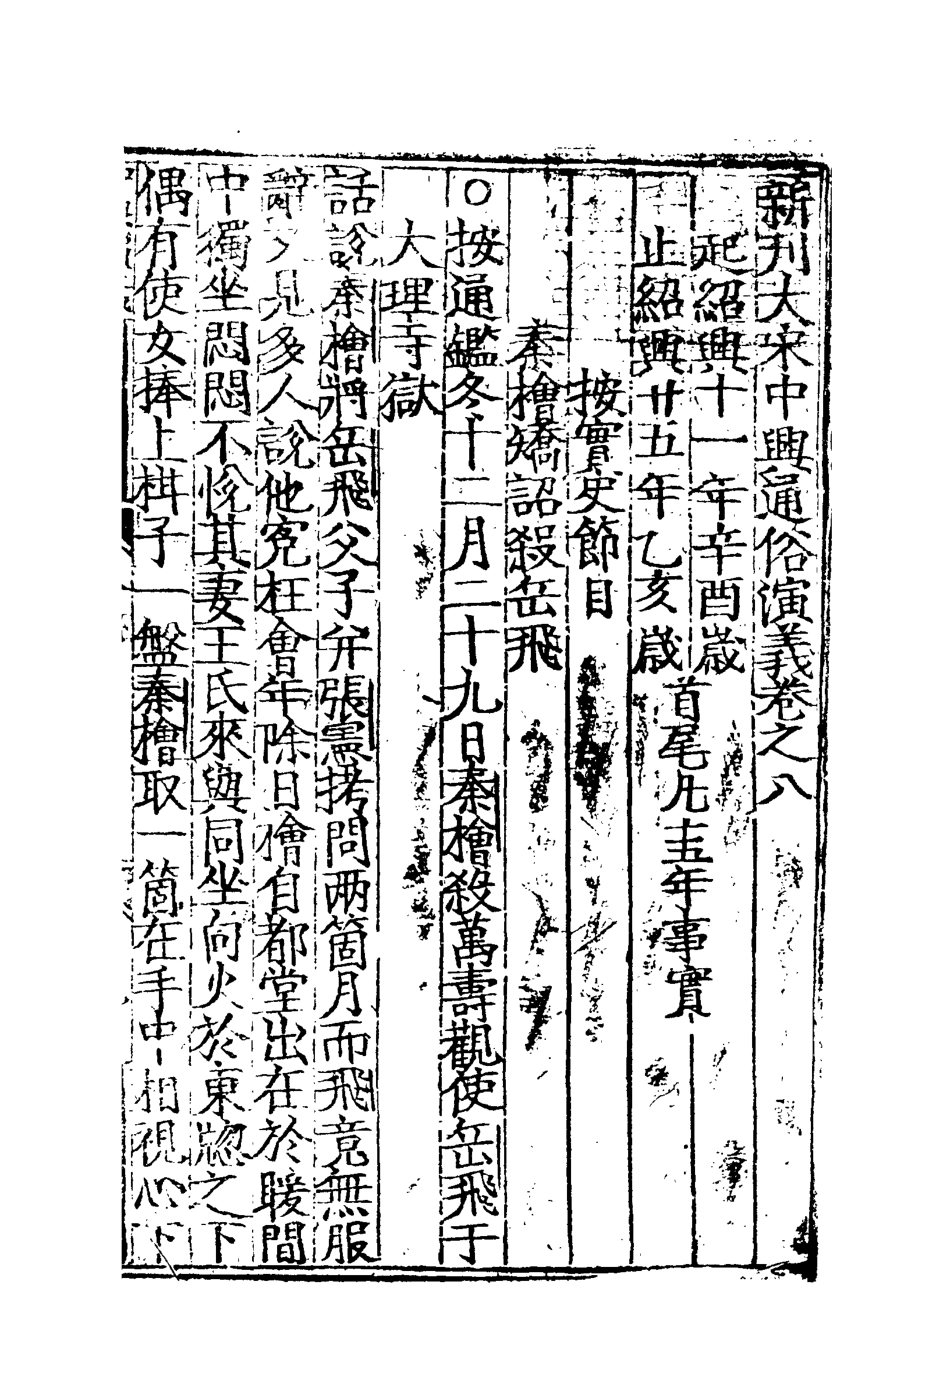 新刊大宋中興通俗演義卷之八
起紹興十一年辛酉歲
止紹興廿五年乙亥歲
首尾凡十五年事實
按實史節目
秦檜矯詔殺岳飛
○按通鑑冬十二月二十九日秦檜殺萬壽觀使岳飛于
大理寺獄
話說秦檜將岳飛父子并張憲拷問两箇月而飛竟無服
辭又見多人說他寃枉會年除日檜自都堂出在於暖閤
中獨坐悶悶不悅其妻王氏來與同坐向火於東窓之下
偶有使女捧上柑子一盤秦檜取一箇在手中相視心下